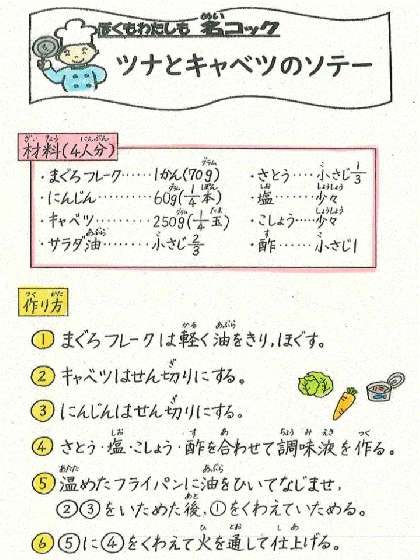 ぼくもわたしも 名コック
ツナとキャベツのソテー
材料(4人分)
・まぐろフレーク……1かん(70g)
・にんじん……60g(1/4本)
・キャベツ……250g(1/4玉)
・サラダ油……小さじ2/3
・さとう…小さじ1/3
・塩……少々
・こしょう…少々
・酢……小さじ1
作り方
① まぐろフレークは軽く油をきり、ほぐす。
② キャベツはせん切りにする。
③ にんじんはせん切りにする。
④ さとう・塩・こしょう・酢を合わせて調味液を作る。
⑤ 温めたフライパンに油をひいてなじませ、
②③をいためた後、①をくわえていためる。
⑥ ⑤に④をくわえて火を通して仕上げる。